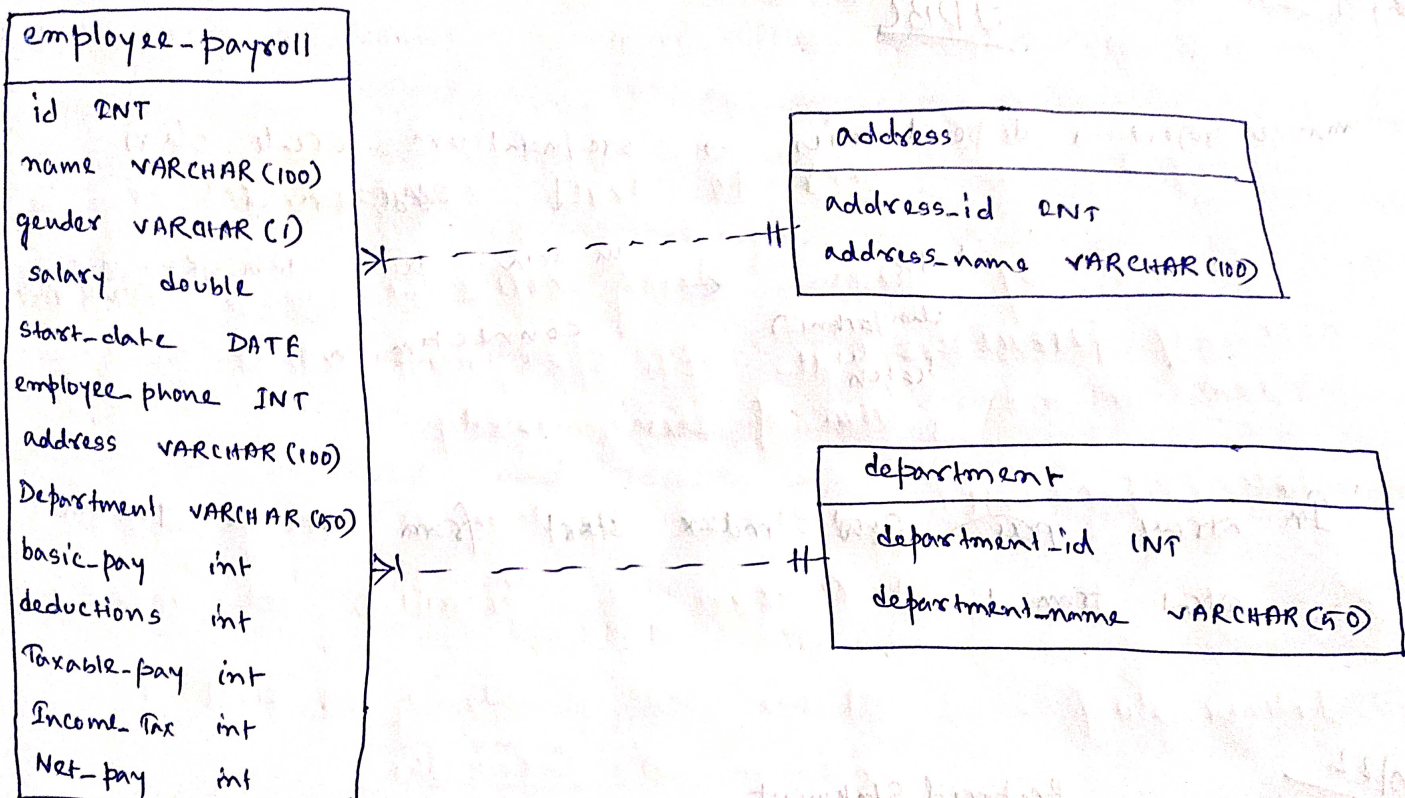 employee_payroll
id INT
name VARCHAR (100)
gender VARCHAR (1)
salary double
Start_date DATE
employee_phone INT
address VARCHAR (100)
Department VARCHAR (50)
basic_pay int
deductions int
Taxable_pay int
Income_Tax int
Net_pay int
address
address_id INT
address_name VARCHAR (100)
department
department_id INT
department_name VARCHAR (50)